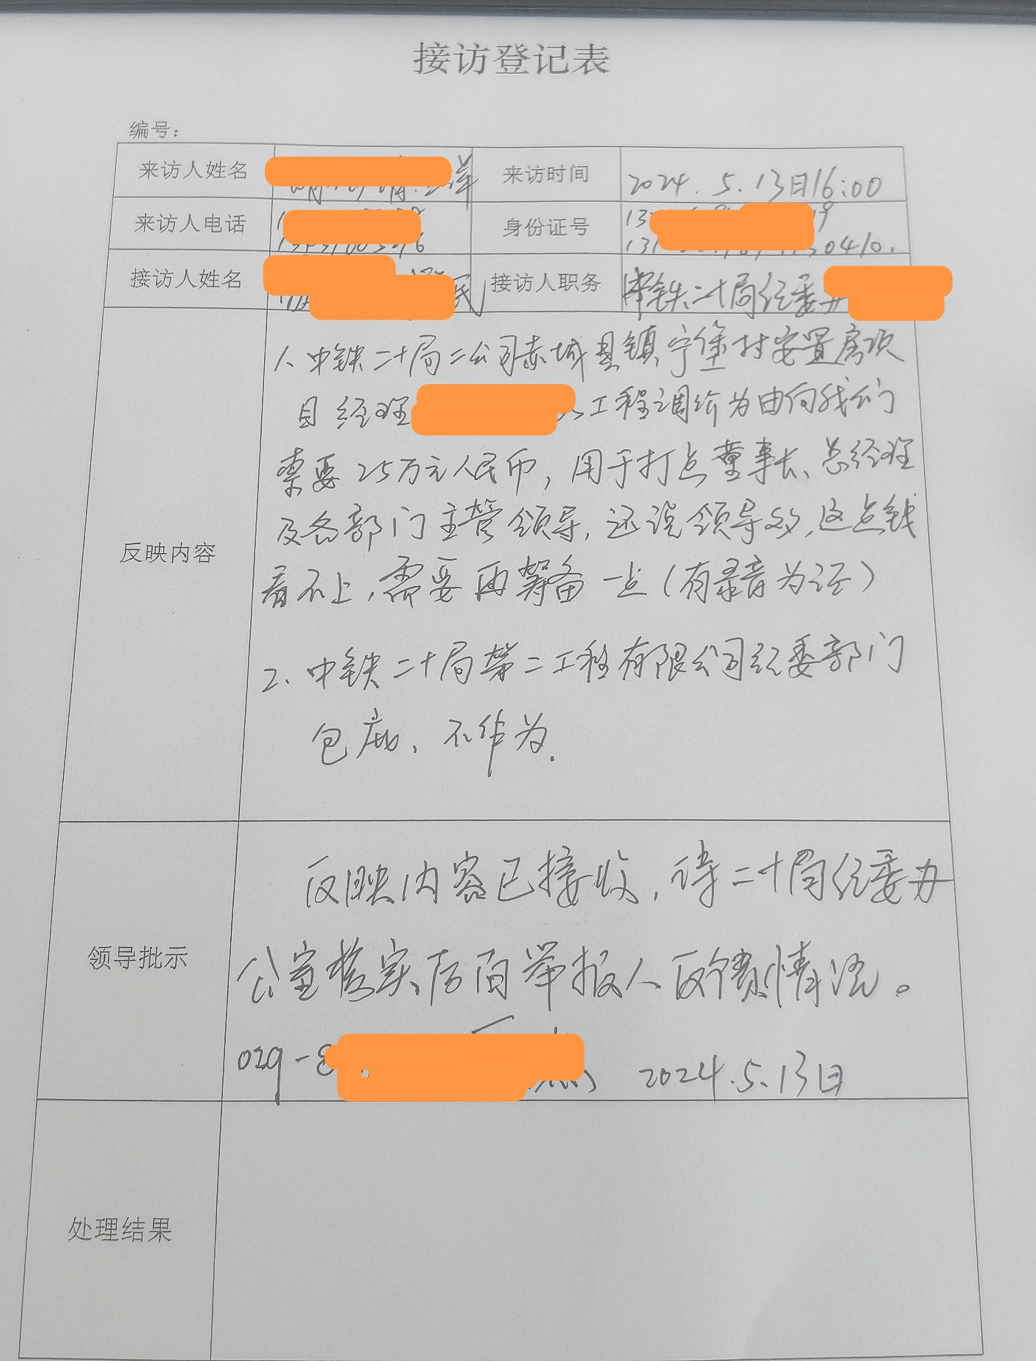 接访登记表
编号：
来访人姓名 来访时间 2024.5.13日16:00
来访人电话 身份证号
0410.
接访人姓名 民 接访人职务 中铁二十局纪委办
反映内容
1、中铁二十局二公司赤城县镇宁堡村安置房项
目经理 以工程调价为由向我们
索要25万元人民币，用于打点董事长、总经理
及各部门主管领导，还说领导多，这点钱
看不上，需要再筹备一点（有录音为证）
2、中铁二十局第二工程有限公司纪委部门
包庇、不作为.
领导批示
反映内容已接收，待二十局纪委办
公室核实后向举报人反馈情况。
029-8 2024.5.13日
处理结果